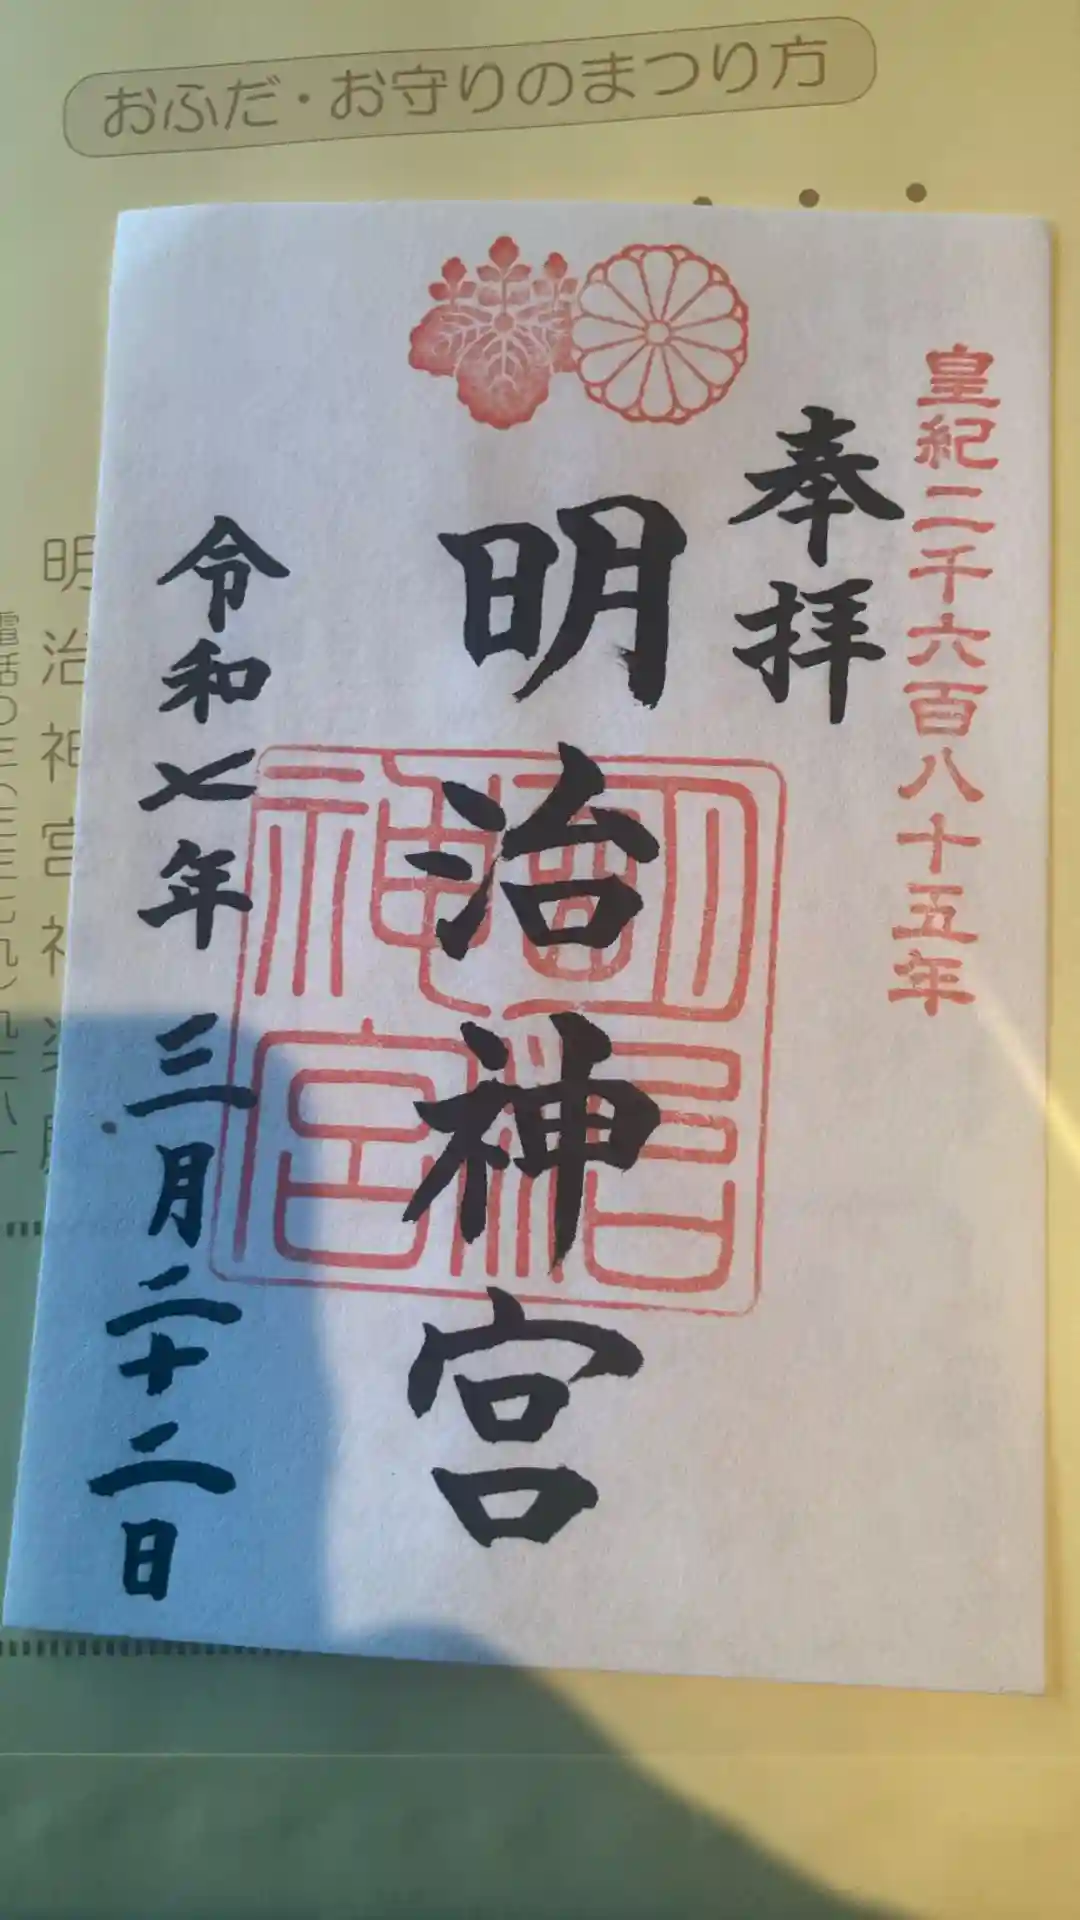 おふだ・お守りのまつり方
皇紀二千六百八十五年
奉拝
明治神宮
明治神宮
令和七年 三月二十二日
明治神宮神楽殿